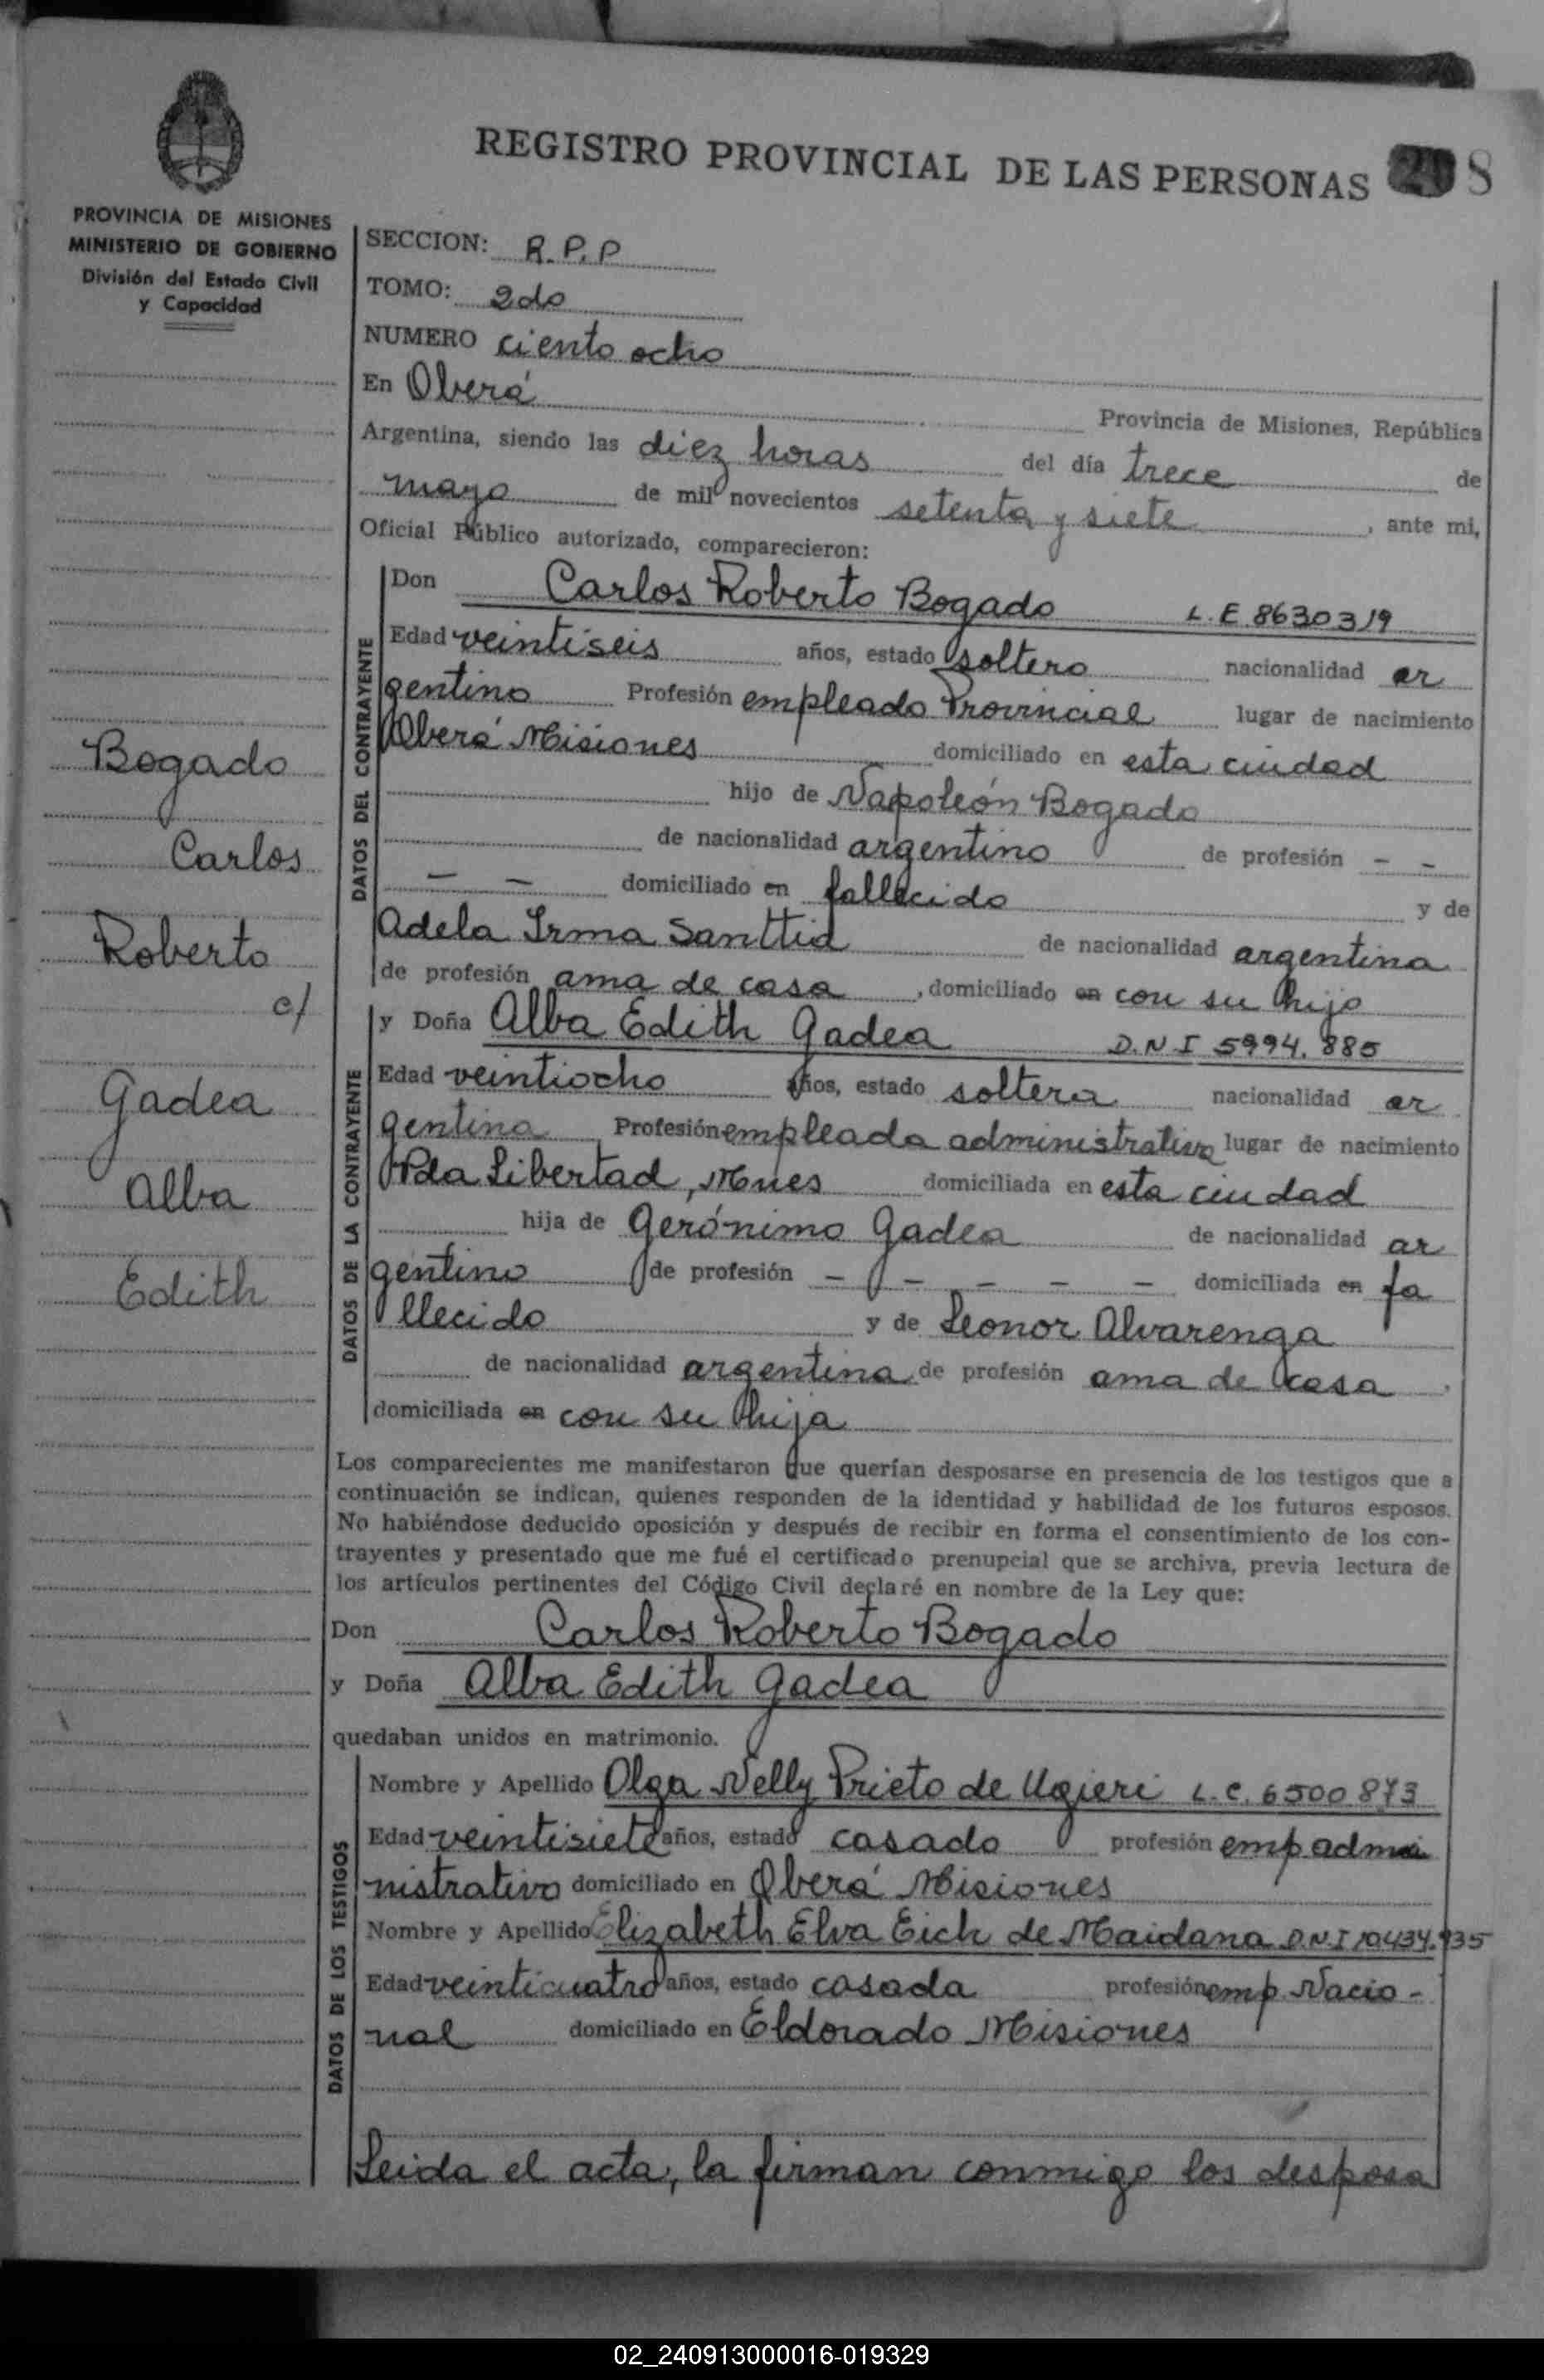 REGISTRO PROVINCIAL DE LAS PERSONAS 8
PROVINCIA DE MISIONES
MINISTERIO DE GOBIERNO
División del Estado Civil
y Capacidad
SECCION: R.P.P
TOMO: 2do
NUMERO ciento ocho
En Oberá Provincia de Misiones, República
Argentina, siendo las diez horas del día trece de
mayo de mil novecientos setenta y siete, ante mi,
Oficial Público autorizado, comparecieron:
Bogado
Carlos
Roberto
c/
Gadea
Alba
Edith
DATOS DEL CONTRAYENTE
Don Carlos Roberto Bogado L.E 8630319
Edad veintiseis años, estado soltero nacionalidad ar
gentino Profesión empleado Provincial lugar de nacimiento
Oberá Misiones domiciliado en esta ciudad
hijo de Napoleón Bogado
de nacionalidad argentino de profesión - -
- - domiciliado en fallecido y de
Adela Irma Santtid de nacionalidad argentina
de profesión ama de casa, domiciliado en con su hijo
DATOS DE LA CONTRAYENTE
y Doña Alba Edith Gadea D.N.I 5994.885
Edad veintiocho años, estado soltera nacionalidad ar
gentina Profesión empleada administrativa lugar de nacimiento
Pda Libertad, Mnes domiciliada en esta ciudad
hija de Gerónimo Gadea de nacionalidad ar
gentino de profesión - - - - - domiciliada en fa
llecido y de Leonor Alvarenga
de nacionalidad argentina de profesión ama de casa
domiciliada en con su hija
Los comparecientes me manifestaron que querían desposarse en presencia de los testigos que a
continuación se indican, quienes responden de la identidad y habilidad de los futuros esposos.
No habiéndose deducido oposición y después de recibir en forma el consentimiento de los con-
trayentes y presentado que me fué el certificado prenupcial que se archiva, previa lectura de
los artículos pertinentes del Código Civil declaré en nombre de la Ley que:
Don Carlos Roberto Bogado
y Doña Alba Edith Gadea
quedaban unidos en matrimonio.
DATOS DE LOS TESTIGOS
Nombre y Apellido Olga Nelly Prieto de Ugieri L.C. 6500873
Edad veintisiete años, estado casado profesión emp admi
nistrativo domiciliado en Oberá Misiones
Nombre y Apellido Elizabeth Elva Eich de Maidana D.N.I 10434.935
Edad veinticuatro años, estado casada profesión emp Nacio-
nal domiciliado en Eldorado Misiones
Leida el acta, la firman conmigo los desposa
02_240913000016-019329